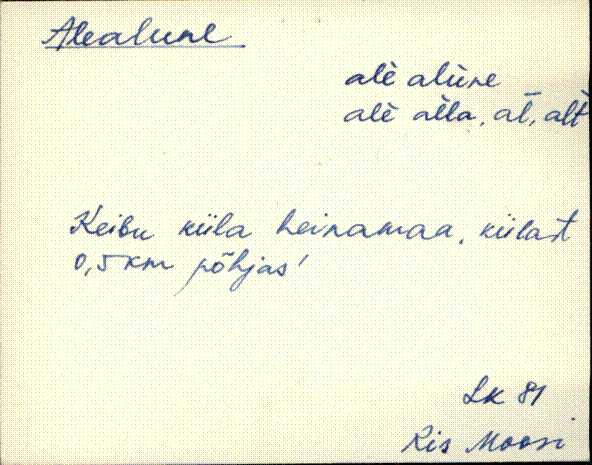 Alealune
alè alùne
alè àlla, al, alt
Keibu küla heinamaa, külast
0,5 km põhjas'
Lk 81
Ris Moosi